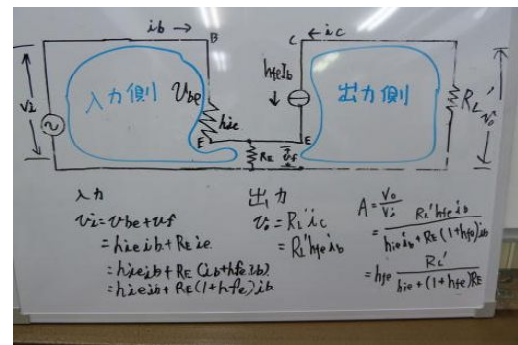 ib →
B
C
← ic
hfeIb ↓
vi
入力側
vbe
hie
出力側
RL'
vo
E
E
RE
vf
入力
vi = vbe + vf
= hie ib + RE ie
= hie ib + RE (ib + hfe ib)
= hie ib + RE (1 + hfe) ib
出力
vo = RL' ic
= RL' hfe ib
A = vo/vi = RL' hfe ib / hie ib + RE (1 + hfe) ib
= hfe RL' / hie + (1 + hfe) RE